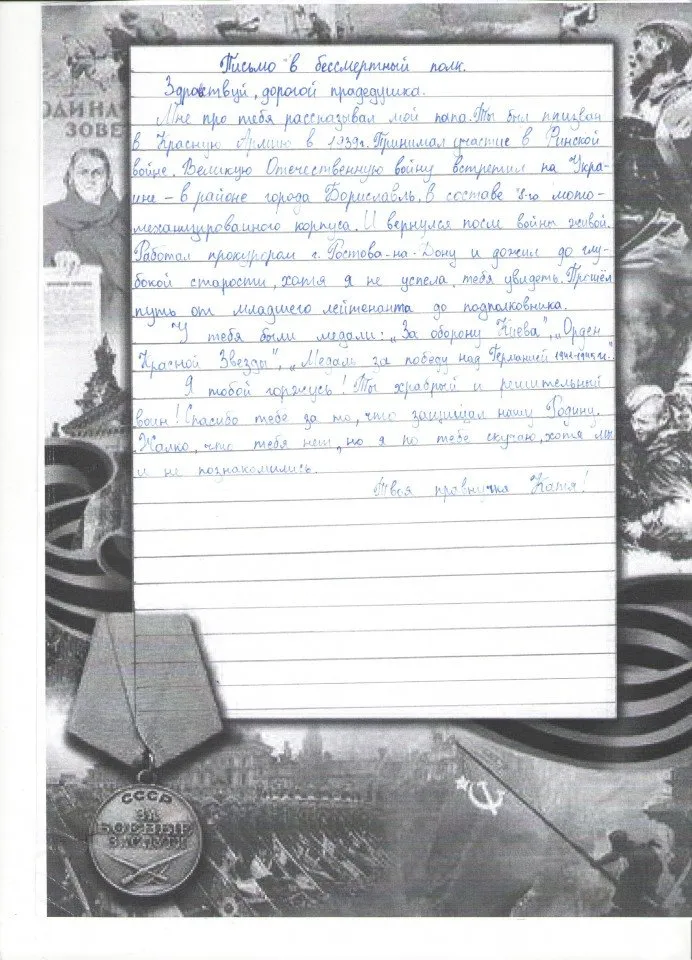 Письмо в бессмертный полк.
Здравствуй, дорогой прадедушка.
Мне про тебя рассказывал мой папа. Ты был призван
в Красную Армию в 1939г. Принимал участие в Финской
войне. Великую Отечественную войну встретил на Укра-
ине – в районе города Бориславль, в составе 8-го мото-
механизированного корпуса. И вернулся после войны живой.
Работал прокурором г. Ростова-на-Дону и дожил до глу-
бокой старости, хотя я не успела тебя увидеть. Прошёл
путь от младшего лейтенанта до подполковника.
У тебя были медали: „За оборону Киева", „Орден
Красной Звезды", „Медаль за победу над Германией
Я тобой горжусь! Ты храбрый и решительный
воин! Спасибо тебе за то, что защищал нашу Родину.
Жалко, что тебя нет, но я по тебе скучаю, хотя мы
и не познакомились.
Твоя правнучка Катя!
ОДИНА
ЗОВЕ
СССР
ЗА
БОЕВЫЕ
ЗАСЛУГИ